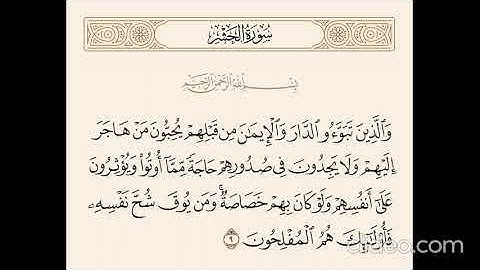 سُورَةُ الحَشْرِ
بِسْمِ اللَّهِ الرَّحْمَٰنِ الرَّحِيمِ
وَالَّذِينَ تَبَوَّءُو الدَّارَ وَالْإِيمَٰنَ مِن قَبْلِهِمْ يُحِبُّونَ مَنْ هَاجَرَ
إِلَيْهِمْ وَلَا يَجِدُونَ فِي صُدُورِهِمْ حَاجَةً مِّمَّآ أُوتُوا۟ وَيُؤْثِرُونَ
عَلَىٰٓ أَنفُسِهِمْ وَلَوْ كَانَ بِهِمْ خَصَاصَةٌ ۚ وَمَن يُوقَ شُحَّ نَفْسِهِۦ
فَأُو۟لَٰٓئِكَ هُمُ الْمُفْلِحُونَ ٩